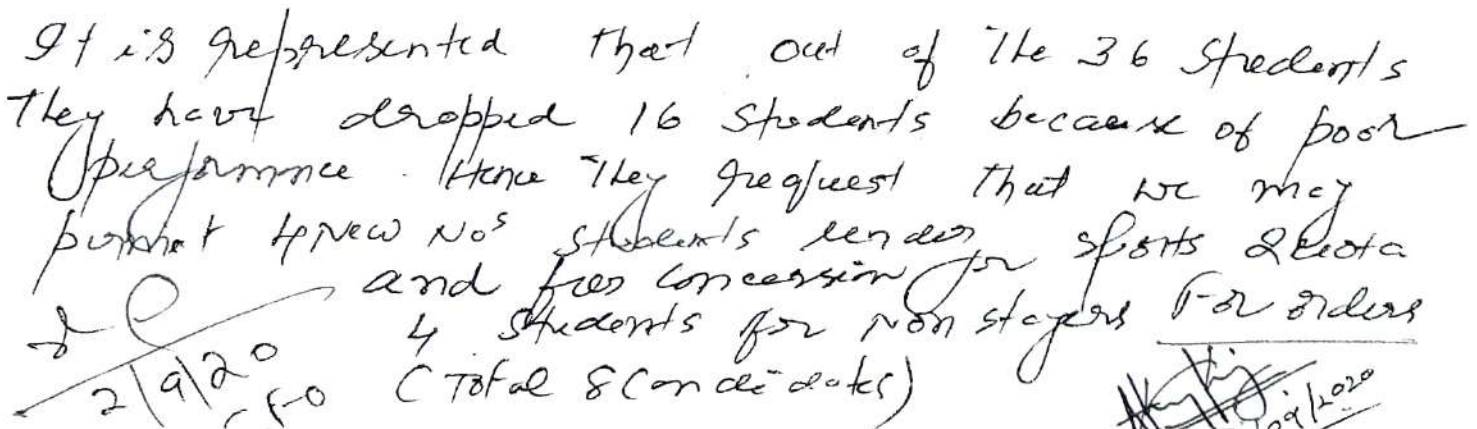 It is represented that out of the 36 students
They have dropped 16 students because of poor
performance. Hence They request that we may
permit 4 New Nos students under sports Quota
and fees concession for
4 students for Non stayers For orders
(Total 8 Candidates)
2/9/20
09/2020